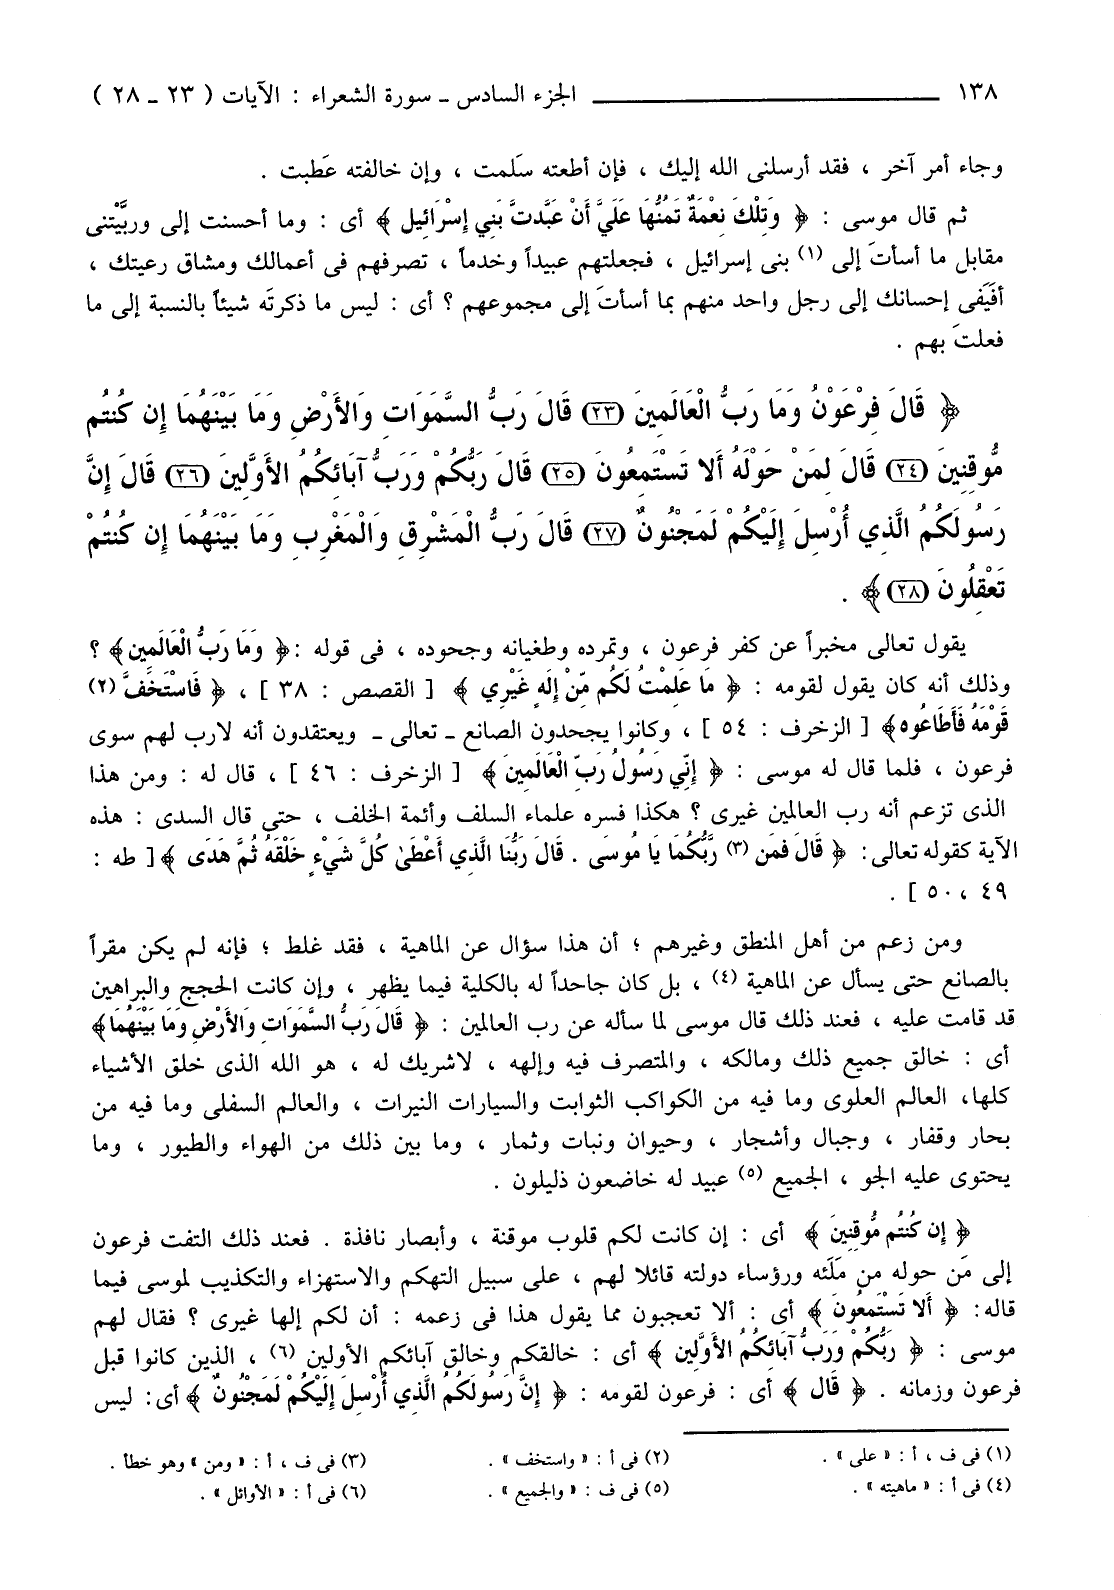 ١٣٨ ـــــــــــــــــ الجزء السادس ـ سورة الشعراء : الآيات ( ٢٣ ـ ٢٨ )
وجاء أمر آخر ، فقد أرسلنى الله إليك ، فإن أطعته سَلمت ، وإن خالفته عَطبت .
ثم قال موسى : ﴿ وَتِلْكَ نِعْمَةٌ تَمُنُّهَا عَلَيَّ أَنْ عَبَّدتَّ بَنِي إِسْرَائِيل ﴾ أى : وما أحسنت إلى وربَّيْتنى
مقابل ما أسأتَ إلى (١) بنى إسرائيل ، فجعلتهم عبيداً وخدماً ، تصرفهم فى أعمالك ومشاق رعيتك ،
أفَيَفى إحسانك إلى رجل واحد منهم بما أسأتَ إلى مجموعهم ؟ أى : ليس ما ذكرتَه شيئاً بالنسبة إلى ما
فعلتَ بهم .
﴿ قَالَ فِرْعَوْنُ وَمَا رَبُّ الْعَالَمِينَ (٢٣) قَالَ رَبُّ السَّمَوَاتِ وَالأَرْضِ وَمَا بَيْنَهُمَا إِن كُنتُم
مُّوقِنِينَ (٢٤) قَالَ لِمَنْ حَوْلَهُ أَلا تَسْتَمِعُونَ (٢٥) قَالَ رَبُّكُمْ وَرَبُّ آبَائِكُمُ الأَوَّلِينَ (٢٦) قَالَ إِنَّ
رَسُولَكُمُ الَّذِي أُرْسِلَ إِلَيْكُمْ لَمَجْنُونٌ (٢٧) قَالَ رَبُّ الْمَشْرِقِ وَالْمَغْرِبِ وَمَا بَيْنَهُمَا إِن كُنتُمْ
تَعْقِلُونَ (٢٨) ﴾ .
يقول تعالى مخبراً عن كفر فرعون ، وتمرده وطغيانه وجحوده ، فى قوله :﴿ وَمَا رَبُّ الْعَالَمِين ﴾ ؟
وذلك أنه كان يقول لقومه : ﴿ مَا عَلِمْتُ لَكُم مِّنْ إِلَهٍ غَيْرِي ﴾ [ القصص : ٣٨ ] ، ﴿ فَاسْتَخَفَّ (٢)
قَوْمَهُ فَأَطَاعُوه﴾ [ الزخرف : ٥٤ ] ، وكانوا يجحدون الصانع ـ تعالى ـ ويعتقدون أنه لارب لهم سوى
فرعون ، فلما قال له موسى : ﴿ إِنِّي رَسُولُ رَبِّ الْعَالَمِينَ ﴾ [ الزخرف : ٤٦ ] ، قال له : ومن هذا
الذى تزعم أنه رب العالمين غيرى ؟ هكذا فسره علماء السلف وأئمة الخلف ، حتى قال السدى : هذه
الآية كقوله تعالى: ﴿ قَالَ فَمَن (٣) رَّبُّكُمَا يَا مُوسَى . قَالَ رَبُّنَا الَّذِي أَعْطَىٰ كُلَّ شَيْءٍ خَلْقَهُ ثُمَّ هَدَى ﴾[ طه :
٤٩ ، ٥٠ ] .
ومن زعم من أهل المنطق وغيرهم ؛ أن هذا سؤال عن الماهية ، فقد غلط ؛ فإنه لم يكن مقراً
بالصانع حتى يسأل عن الماهية (٤) ، بل كان جاحداً له بالكلية فيما يظهر ، وإن كانت الحجج والبراهين
قد قامت عليه ، فعند ذلك قال موسى لما سأله عن رب العالمين : ﴿ قَالَ رَبُّ السَّمَوَاتِ وَالأَرْضِ وَمَا بَيْنَهُمَا﴾
أى : خالق جميع ذلك ومالكه ، والمتصرف فيه وإلهه ، لاشريك له ، هو الله الذى خلق الأشياء
كلها، العالم العلوى وما فيه من الكواكب الثوابت والسيارات النيرات ، والعالم السفلى وما فيه من
بحار وقفار ، وجبال وأشجار ، وحيوان ونبات وثمار ، وما بين ذلك من الهواء والطيور ، وما
يحتوى عليه الجو ، الجميع (٥) عبيد له خاضعون ذليلون .
﴿ إِن كُنتُم مُّوقِنِينَ ﴾ أى : إن كانت لكم قلوب موقنة ، وأبصار نافذة . فعند ذلك التفت فرعون
إلى مَن حوله من مَلَئه ورؤساء دولته قائلا لهم ، على سبيل التهكم والاستهزاء والتكذيب لموسى فيما
قاله: ﴿ أَلا تَسْتَمِعُونَ ﴾ أى : ألا تعجبون مما يقول هذا فى زعمه : أن لكم إلها غيرى ؟ فقال لهم
موسى : ﴿ رَبُّكُمْ وَرَبُّ آبَائِكُمُ الأَوَّلِين ﴾ أى : خالقكم وخالق آبائكم الأولين (٦) ، الذين كانوا قبل
فرعون وزمانه . ﴿ قَال ﴾ أى : فرعون لقومه : ﴿ إِنَّ رَسُولَكُمُ الَّذِي أُرْسِلَ إِلَيْكُمْ لَمَجْنُونٌ ﴾ أى: ليس
(١) فى ف ، أ : « على » . (٢) فى أ : « واستخف » . (٣) فى ف ، أ : « ومن » وهو خطأ .
(٤) فى أ : « ماهيته » . (٥) فى ف : « والجميع » . (٦) فى أ : « الأوائل » .